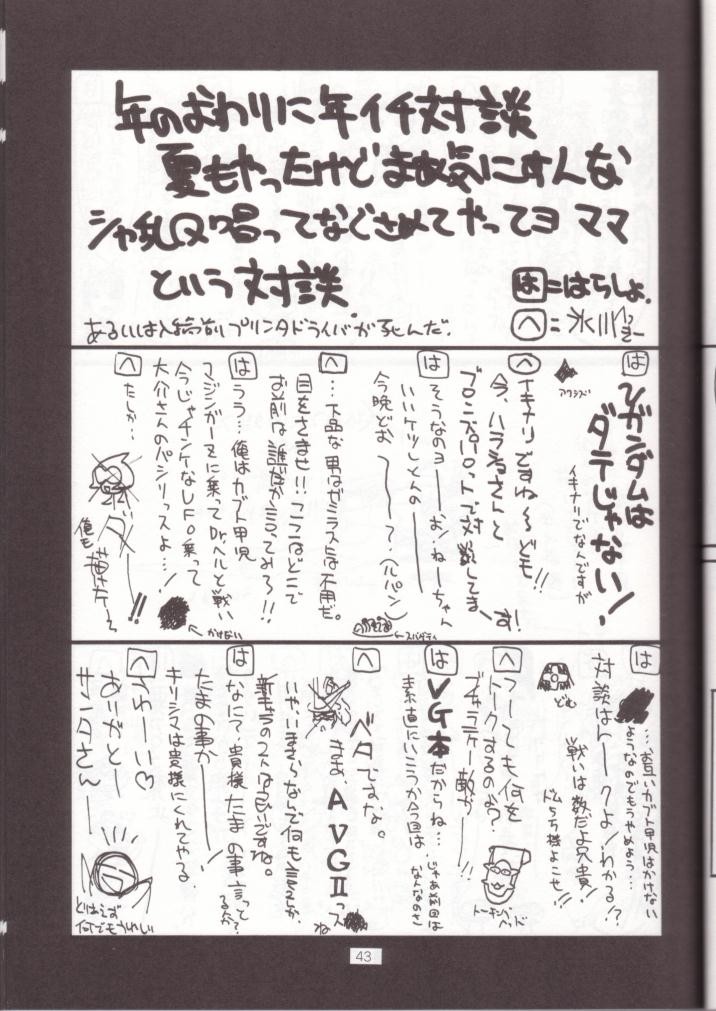 年のおわりに年イチ対談
夏もやったけどまぁ気にすんな
シャ乱Q唱ってなぐさめてやってヨ ママ
という対談
は=はらしょ.
へ=氷川
あるいは入稿前プリンタドライバが死んだ.
は
νガンダムは
ダテじゃない!
イキナリでなんですが
アクシズ
へ
イキナリですね～ども!!
今、ハラショさんと
ブロンズパロットで対談してま
す!
は
そうなのヨ――お!ねーちゃん
いいケツしとんの――
今晩どお ――?(パパン)
←スパゲティ
へ
…下品な男はゼミラストには不用だ。
目をさませ!!ここはどこで
お前は誰だか言ってみろ!!
は
うう…俺はカブト甲児
マジンガーZに乗ってDr.ヘルと戦い
今じゃチンケなUFO乗って
大介さんのパシリっスよ…!
←かけない
へ
たしか…
ダ――!!
俺も
描けた～
は
…、お互いカブト甲児はかけない
ようなのでもうやめよう…
対談はトークよ!わかる!?
戦いは数だよ兄貴!
ドムら5様よこせ!!
どむ
へ
つーても何を
トークするのよ?
ブギャラテー敵が――!!
トーキング・
ヘッド
は
VG本だからね…
素直にいこうか今回は
じゃあ前回は
なんなのさ
へ
ベタですな。
まま、AVGⅡっス
ね
いや、いまさらなんで何も言えんが、
新キャラのコストは良いですね。
は
なにィ、貴様たまの事言って
るか?
たまの事か――!
キリシマは貴様にくれてやる
へ
うわーい♡
ありがとー
サンタさん――
とりあえず
何でもうれしい
43